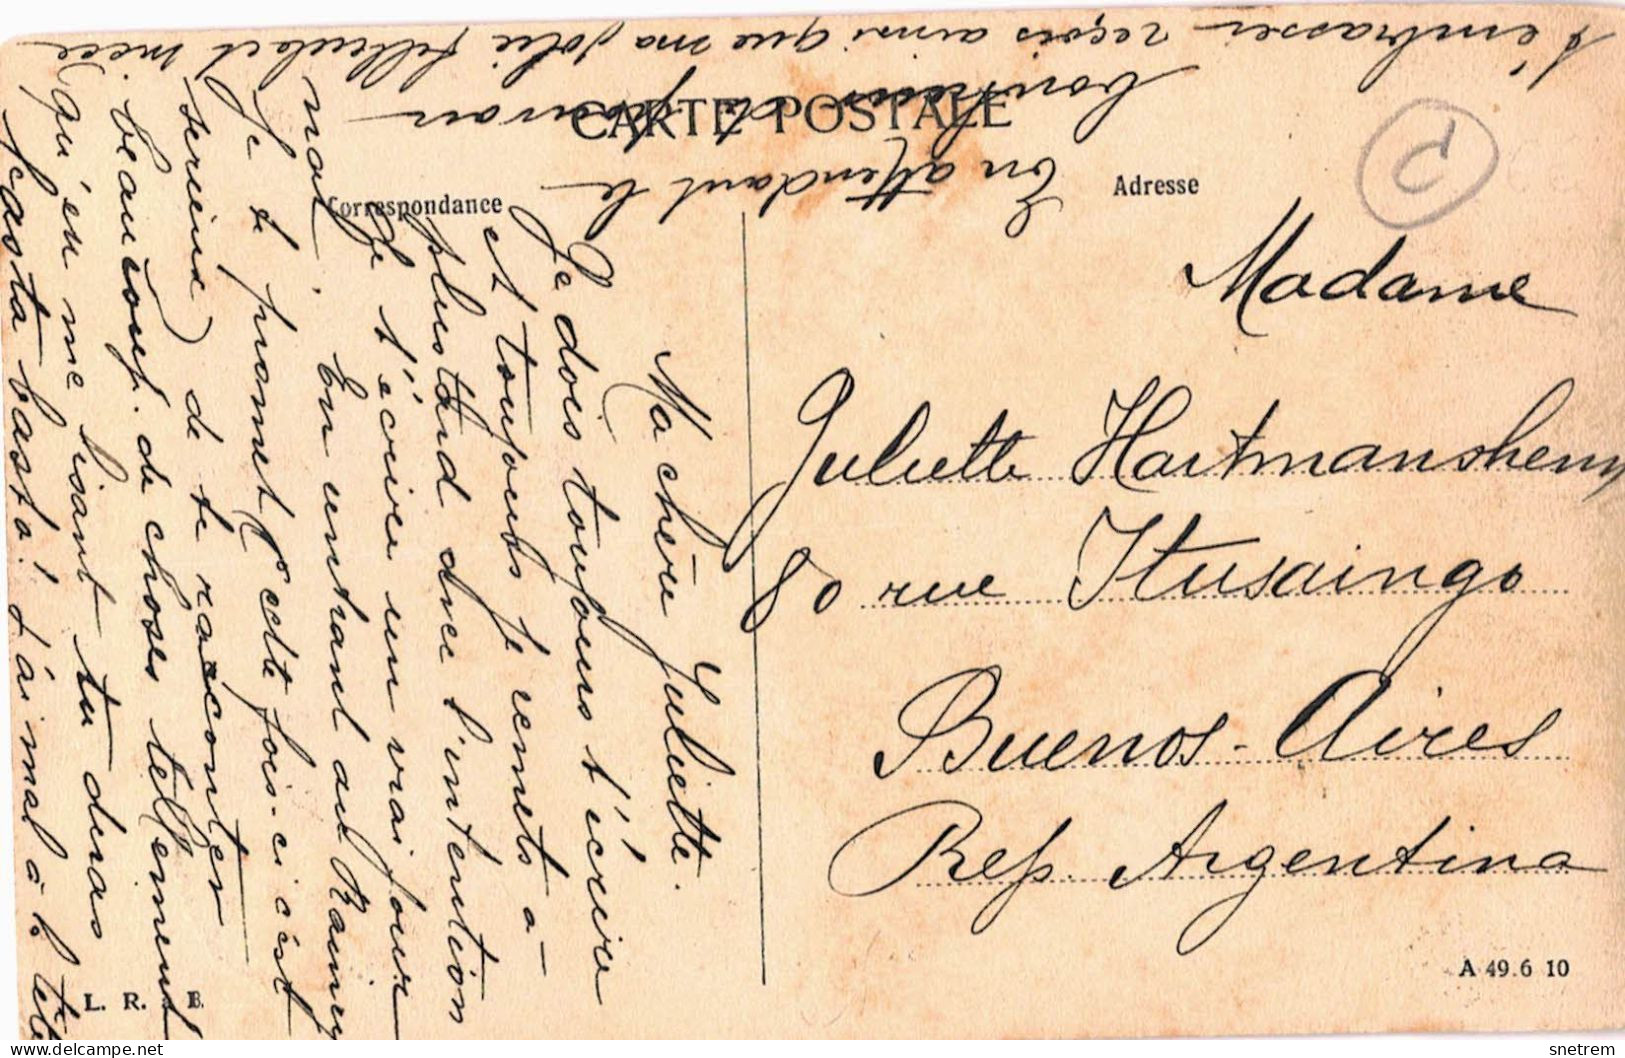 CARTE POSTALE
Correspondance
Adresse
Ma chère Juliette.
Je dois toujours t'écrire
et toujours je remets à
plus tard avec l'intention
de t'écrire un vrai jour
nal. En entrant au
Je te promet (cette fois-ci c'est
serieux) de te raconter
beaucoup de choses tellement
qu'en me lisant tu diras
basta basta! j'ai mal à la tête
En attendant le
de pouvoir
t'embrasser reçois ainsi que ma jolie
Madame
Juliette Hartmanshenn
80 rue Itusaingo
Buenos-Aires
Rep. Argentina
L. R. B.
A 49.6 10
delcampe.net
snetrem